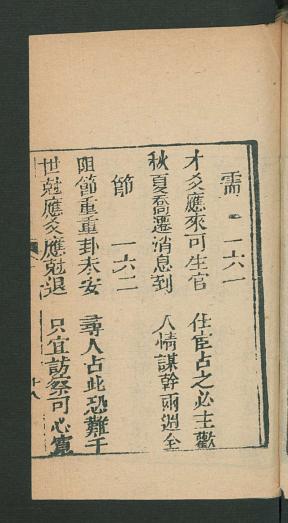 需 一六一
才爻應來可生官 仕宦占之必主歡
秋夏喬遷消息到 人情謀幹兩週全
節 一六二
阻節重重卦未安 尋人占此恐難干
世尅應爻應尅退 只宜訪察可心寬
十八